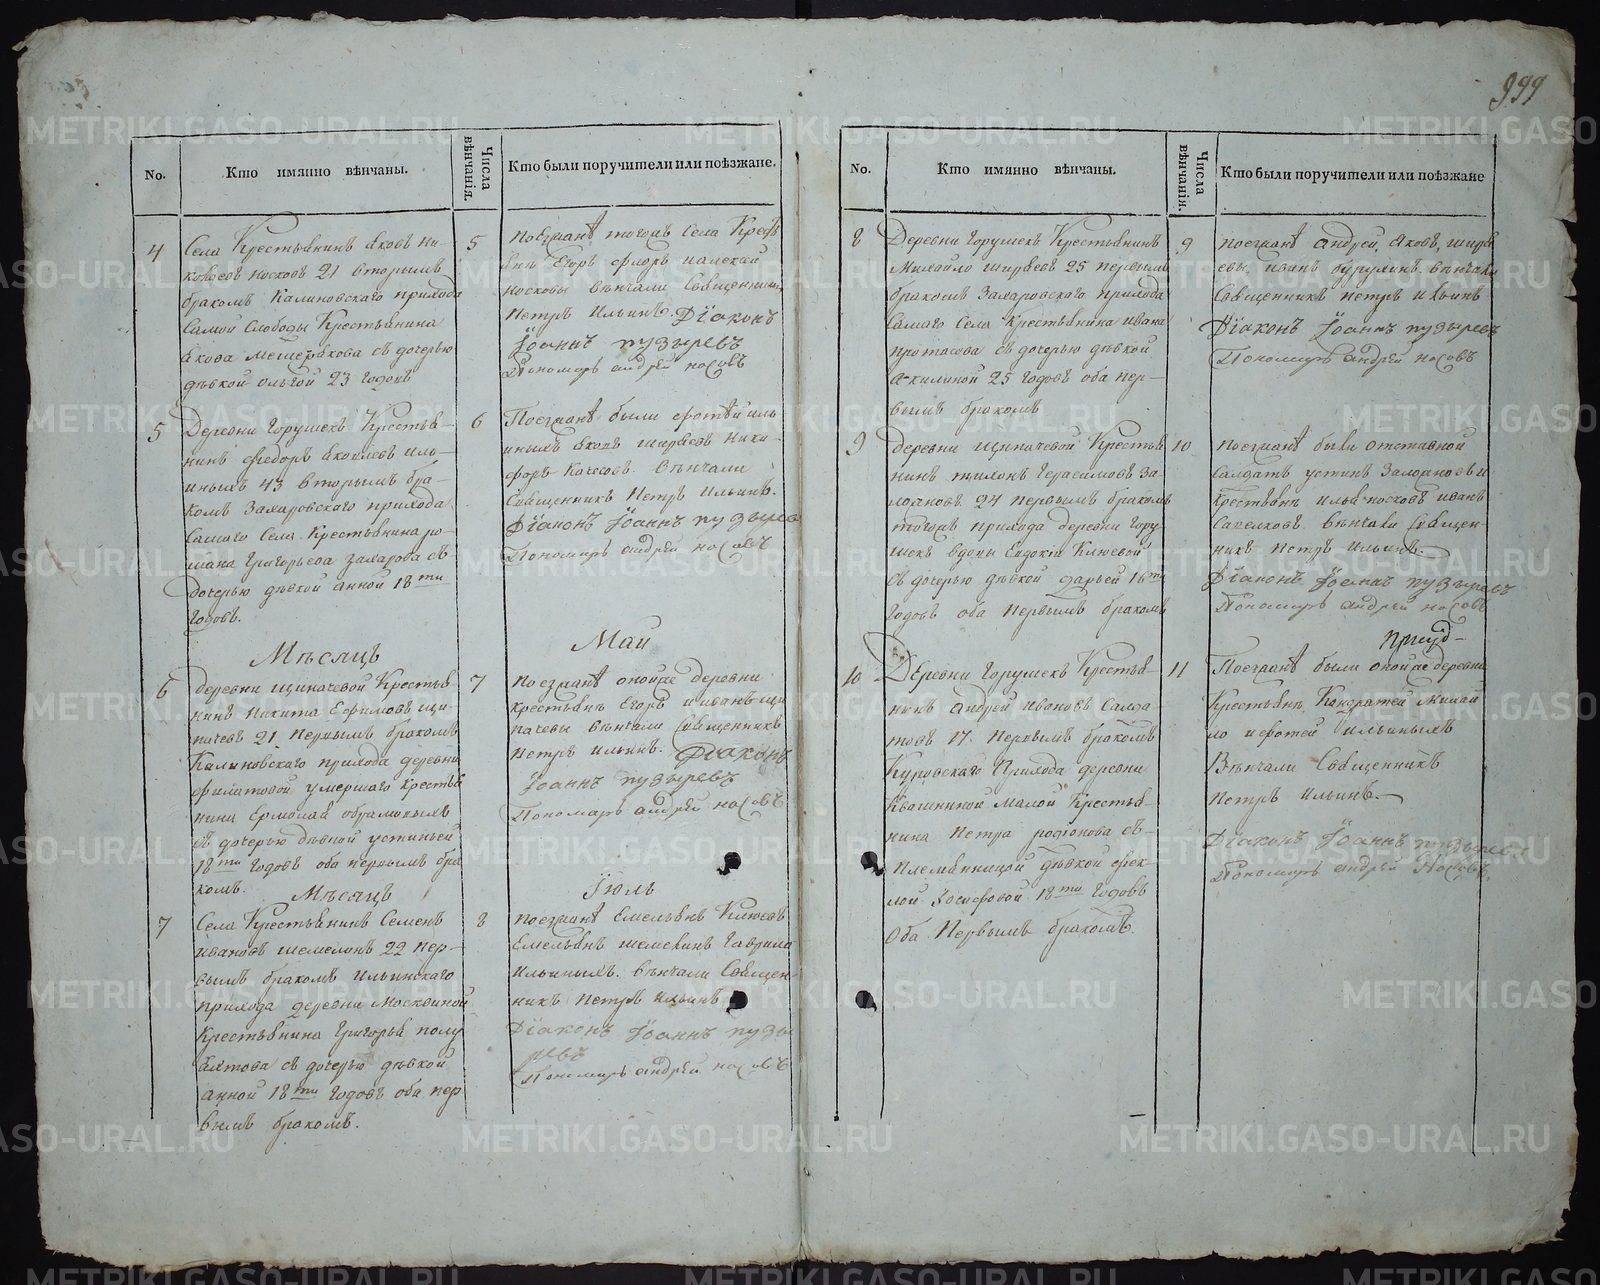 999
No.
Кто имянно вѣнчаны.
Числа вѣнчанія.
Кто были поручители или поѣзжане.
4
Села Крестьянинъ яковъ ни-
Носковъ 21 вторымъ
бракомъ Калиновскаго прихода
Самой Слободы Крестьянина
якова Мещерякова съ дочерью
дѣвкой ольгой 23 годовъ
5
Поезжанѣ тогожъ Села Кресть
янѣ Егоръ
носковы вѣнчали Священникъ
Петръ Ильинъ. Діаконъ
Іоаннъ пузыревъ
Пономарь андрей носовъ
5
Деревни Горушекъ Крестья-
нинъ федоръ яковлевъ иль-
иныхъ 43 вторымъ бра-
комъ Захаровскаго прихода
Самаго Села Крестьянина ро-
мана Григорьева захарова съ
дочерью дѣвкой анной 18ти
годовъ.
6
Поезжанѣ были иль-
иныхъ яковъ ширяевъ ники-
форъ вѣнчали
Священникъ Петръ Ильинъ.
Діаконъ Іоаннъ пузырев
Пономарь андрей носовъ
Мѣсяцъ
Маи
6
деревни щипачевой Крестья
нинъ Никита Ефимовъ щи-
пачевъ 21 первымъ бракомъ
Калиновскаго прихода деревни
филатовой умершаго крестья
нина Ермолая
съ дочерью дѣвкой устиньей
18ти годовъ оба первымъ бра
комъ.
7
Поезжанѣ оной же деревни
крестьянѣ Егоръ и иванъ щи
пачевы вѣнчали Священникъ
Петръ ильинъ. Діаконъ
Іоаннъ пузыревъ
Пономарь андрей носовъ
Мѣсяцъ
Іюль
7
Села Крестьянинъ Семенъ
ивановъ шемелинъ 22 пер-
вымъ бракомъ Ильинскаго
прихода деревни Москвиной
Крестьянина Григорья полу
яхтова съ дочерью дѣвкой
анной 18ти годовъ оба пер
вымъ бракомъ.
8
поезжанѣ Емельянъ Клюевъ
Емельянъ шемелинъ Гаврило
Ильиныхъ. вѣнчали Священ-
никъ Петръ ильинъ
Діаконъ Іоаннъ пузы
ревъ
Пономарь андрей носовъ
No.
Кто имянно вѣнчаны.
Числа вѣнчанія.
Кто были поручители или поѣзжане
8
Деревни Горушекъ Крестьянинъ
Михайло ширяевъ 25 первымъ
бракомъ Захаровскаго прихода
Самаго Села крестьянина ивана
протасова съ дочерью дѣвкой
акилиной 25 годовъ оба пер-
вымъ бракомъ
9
поезжанѣ андрей, яковъ, ширя
евы, иванъ бурухинъ. вѣнчали
Священникъ петръ ильинъ
Діаконъ Іоаннъ пузыревъ
Пономарь андрей носовъ
9
деревни щипачевой Крестья
нинъ тихонъ Герасимовъ за-
24 первымъ бракомъ
тогожъ прихода деревни Гору
шекъ вдовы Евдокіи Клюевой
съ дочерью дѣвкой дарьей 16ти
годовъ оба первымъ бракомъ
10
поезжанѣ были отставной
Салдатъ устинъ
крестьянѣ илья носковъ иванъ
Савелковъ вѣнчали Священ-
никъ Петръ Ильинъ.
Діаконъ Іоаннъ пузыревъ
Пономарь андрей носовъ
10
Деревни Горушекъ Крестья-
нинъ андрей ивановъ Салда
товъ 17. первымъ бракомъ
Куровскаго Прихода деревни
Квашниной малой Крестья-
нина Петра родіонова съ-
племянницой дѣвкой фек-
лой Іосифовой 18ти годовъ
Оба Первымъ бракомъ.
11
Поезжанѣ были оной же деревни
Крестьянѣ Кондратей Михай
ло и фотей ильиныхъ
Вѣнчали Священникъ
Петръ ильинъ.
Діаконъ Іоаннъ пузырев
Пономарь андрей Носовъ